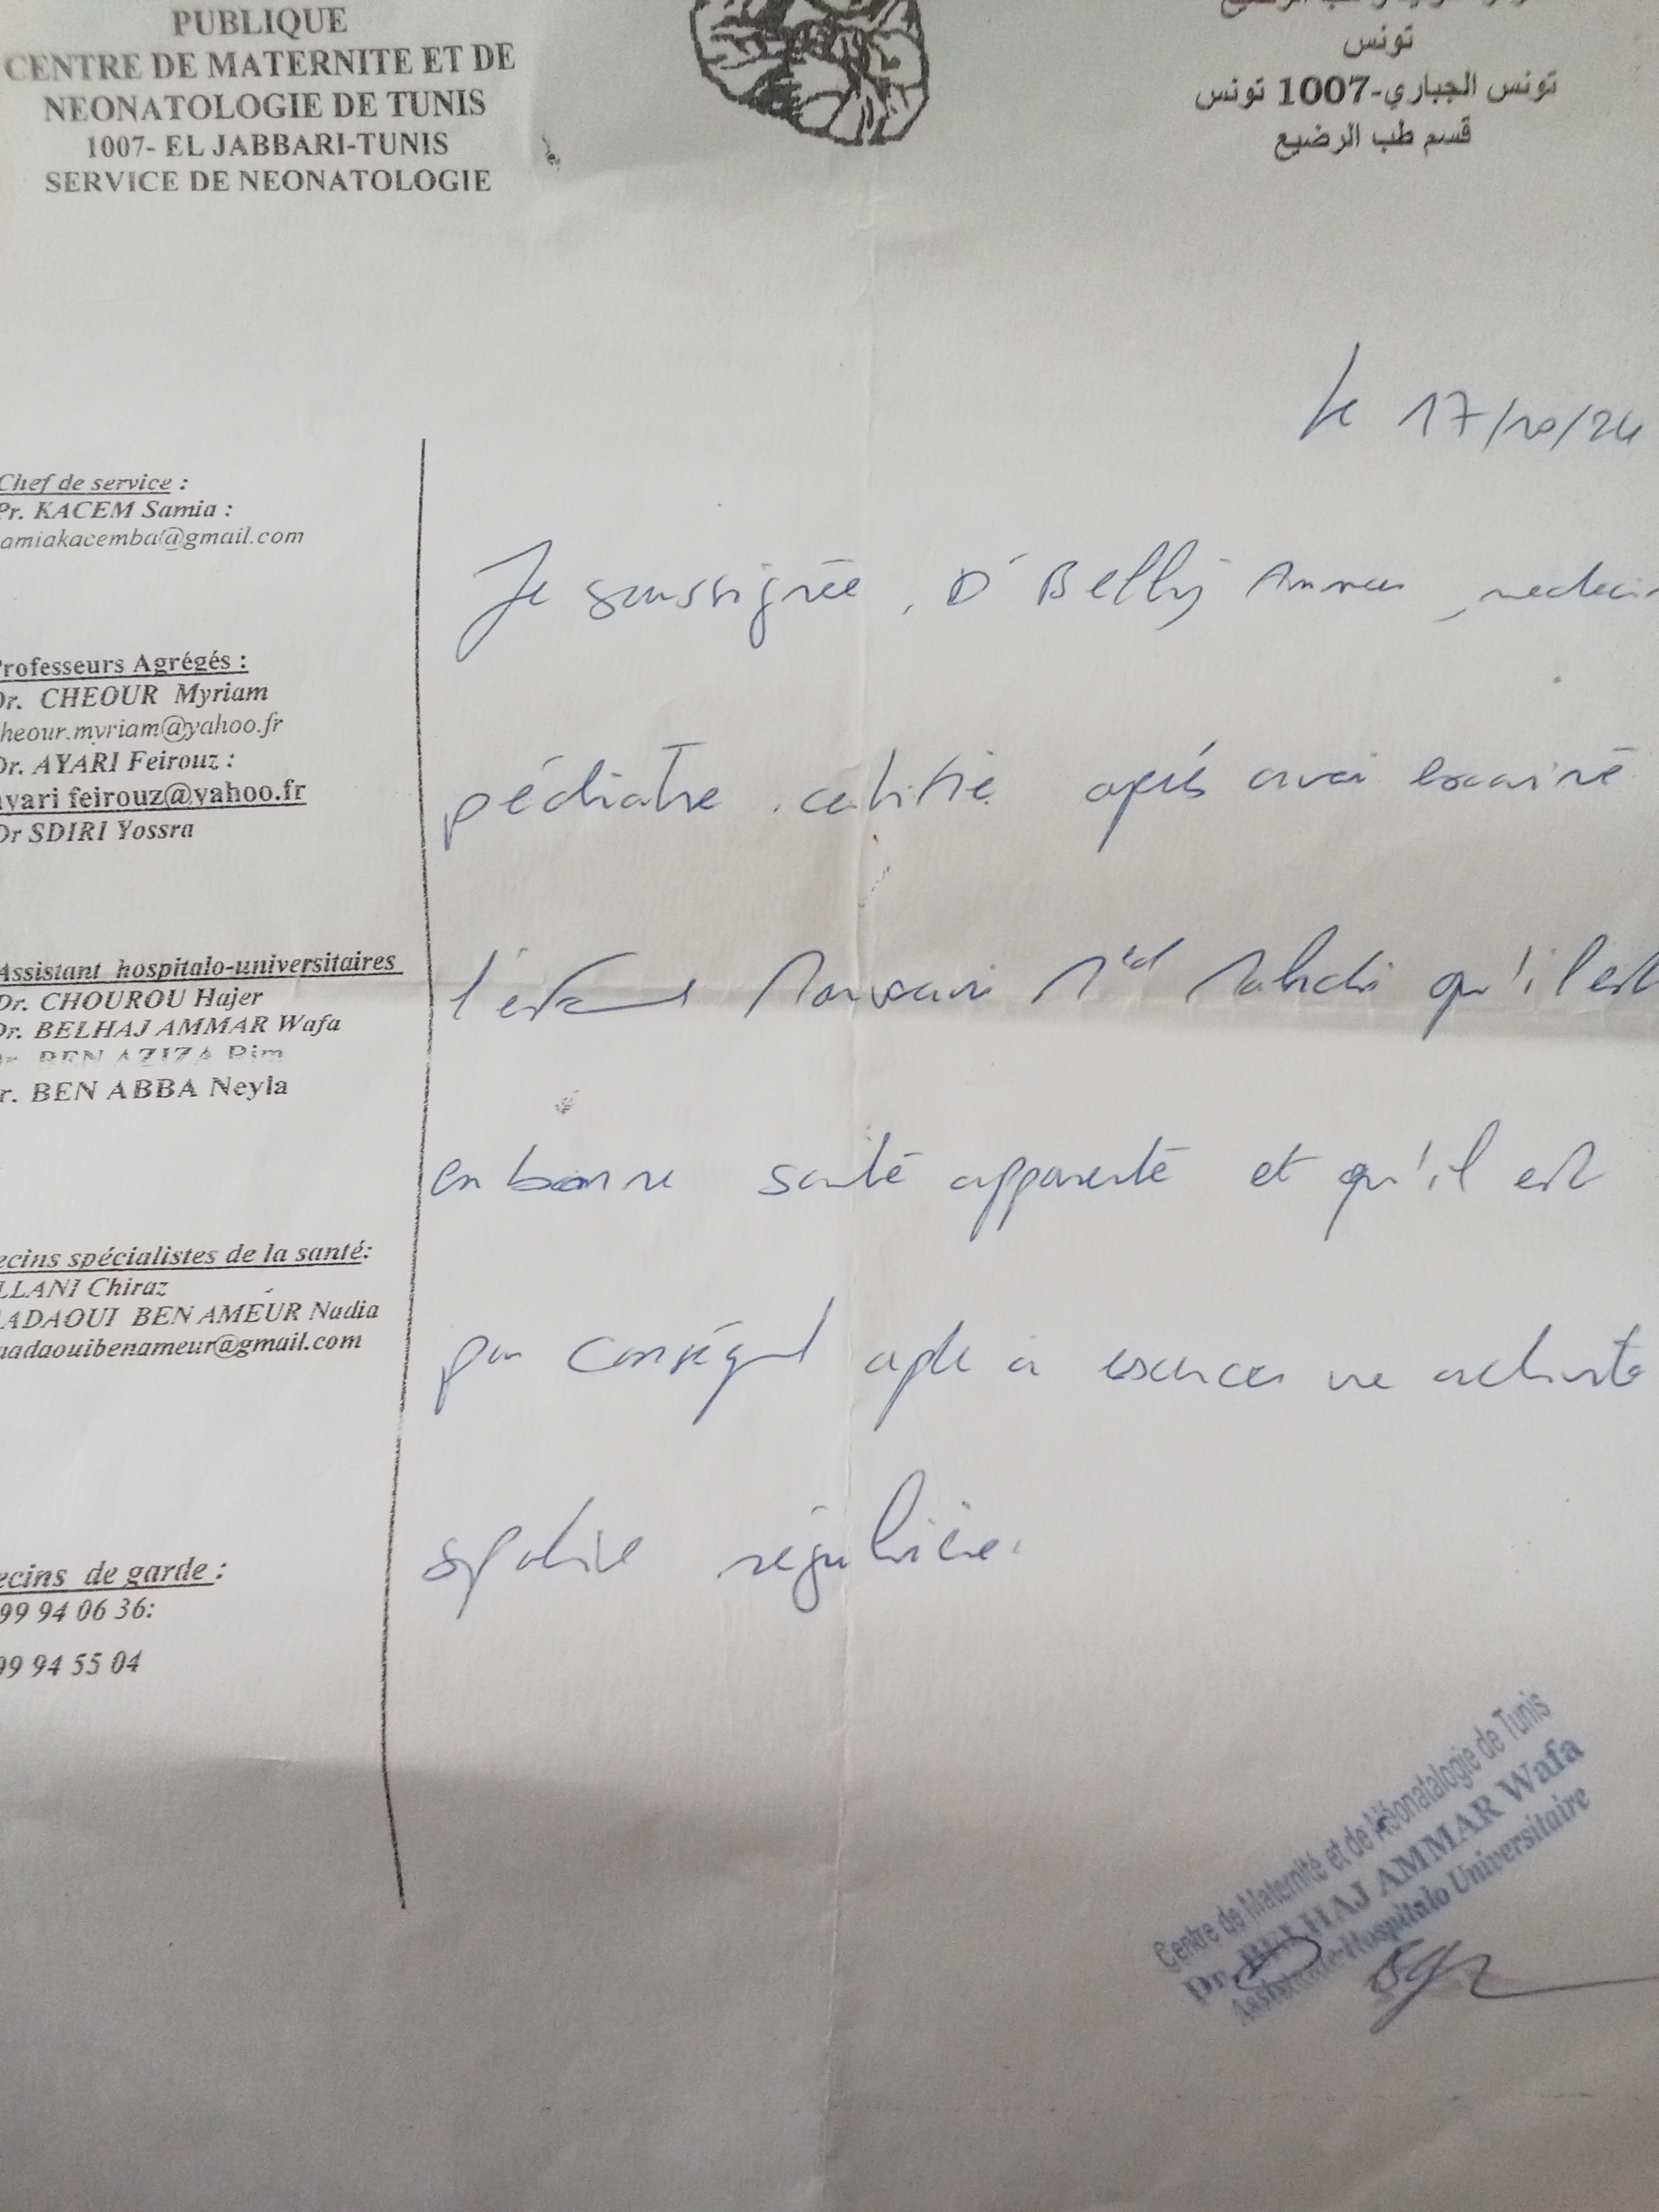 PUBLIQUE
CENTRE DE MATERNITE ET DE
NEONATOLOGIE DE TUNIS
1007- EL JABBARI-TUNIS
SERVICE DE NEONATOLOGIE
تونس
تونس الجباري-1007 تونس
قسم طب الرضيع
Le 17/10/24
Chef de service :
Pr. KACEM Samia :
amiakacemba@gmail.com
rofesseurs Agrégés :
Dr. CHEOUR Myriam
heour.myriam@yahoo.fr
Dr. AYARI Feirouz :
yari feirouz@yahoo.fr
Dr SDIRI Yossra
Assistant hospitalo-universitaires
Dr. CHOUROU Hajer
Dr. BELHAJ AMMAR Wafa
BEN AZIZA Rim
r. BEN ABBA Neyla
ecins spécialistes de la santé:
LLANI Chiraz
ADAOUI BEN AMEUR Nadia
adaouibenameur@gmail.com
ecins de garde :
99 94 06 36:
99 94 55 04
Je soussignée, Dr Belhaj Ammar, medecin
pédiatre certifie après avoir examiné
l'enfant Mahdi qu'il est
en bonne santé apparente et qu'il est
par conséquent apte à exercer une activité
sportive régulière.
Centre de Maternité et de Néonatalogie de Tunis
Dr. BELHAJ AMMAR Wafa
Assistante Hospitalo Universitaire